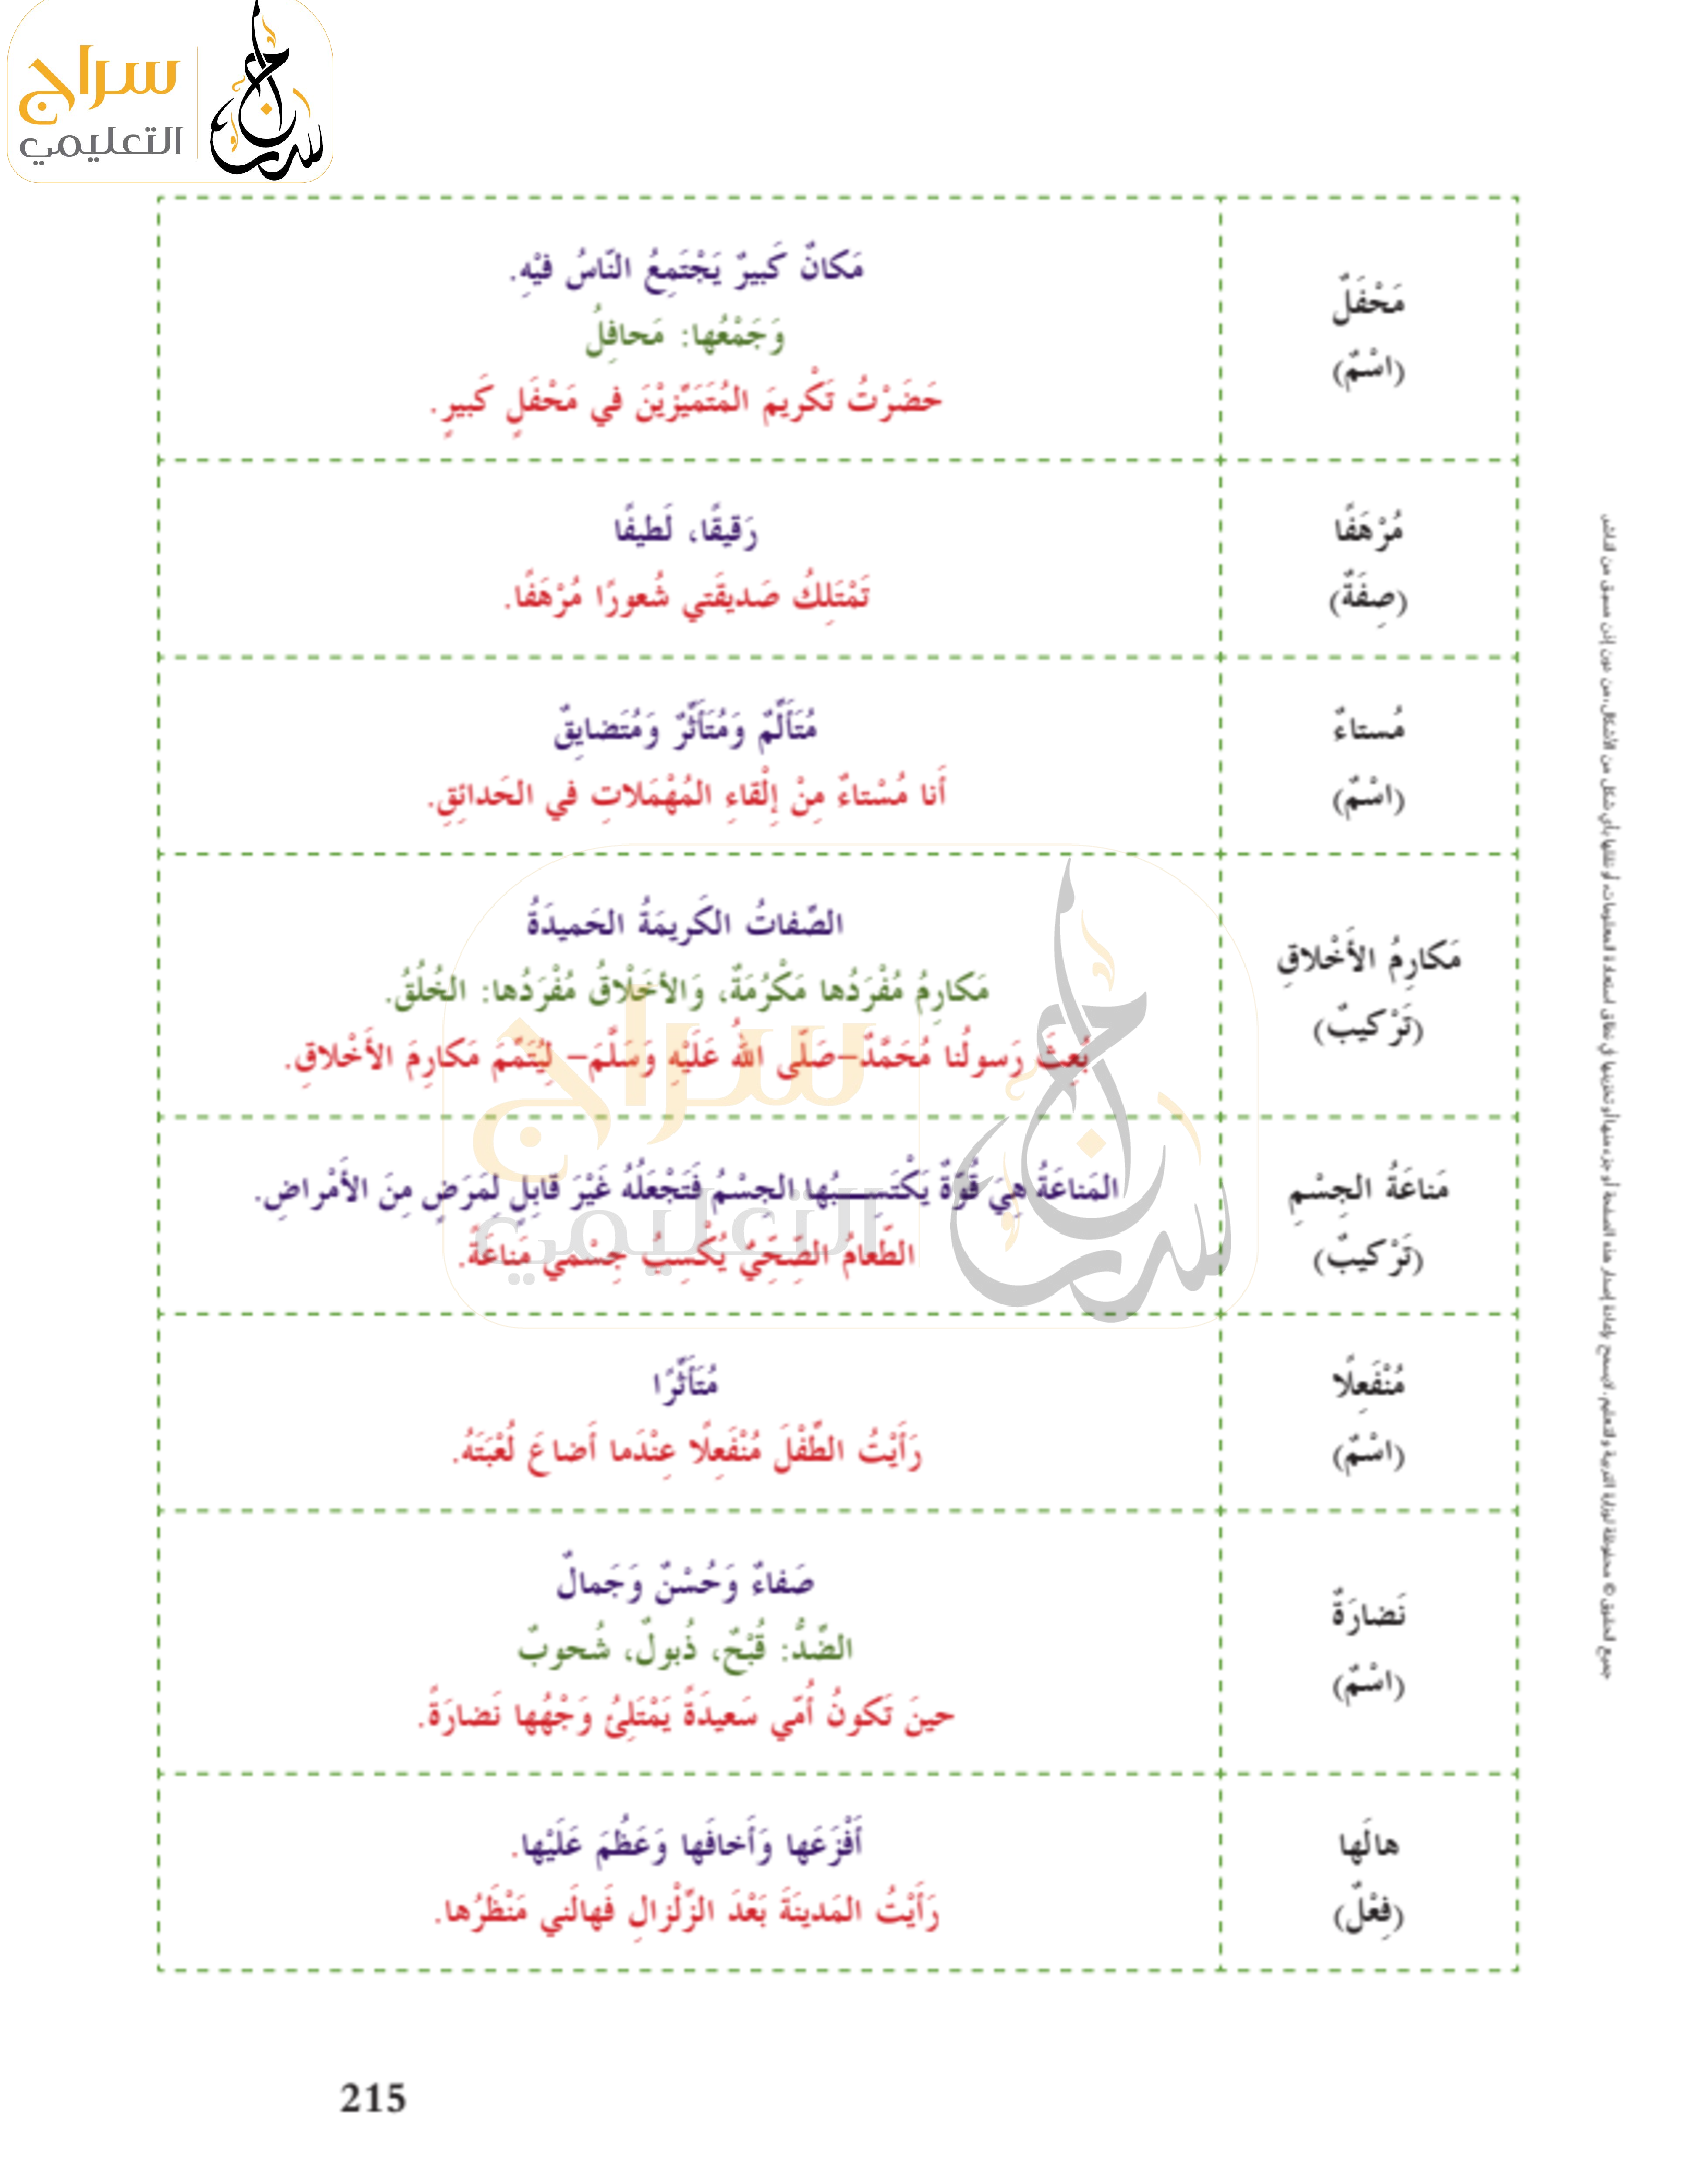 سراج
التعليمي
مَحْفَلٌ
(اسْمٌ)
مَكانٌ كَبيرٌ يَجْتَمِعُ النّاسُ فيْهِ.
وَجَمْعُها: مَحافِلُ
حَضَرْتُ تَكْريمَ المُتَمَيِّزيْنَ في مَحْفَلٍ كَبيرٍ.
مُرْهَفًا
(صِفَةٌ)
رَقيقًا، لَطيفًا
تَمْتَلِكُ صَديقَتي شُعورًا مُرْهَفًا.
مُستاءٌ
(اسْمٌ)
مُتَأَلِّمٌ وَمُتَأَثِّرٌ وَمُتَضايِقٌ
أَنا مُسْتاءٌ مِنْ إِلْقاءِ المُهْمَلاتِ في الحَدائِقِ.
مَكارِمُ الأَخْلاقِ
(تَرْكيبٌ)
الصِّفاتُ الكَريمَةُ الحَميدَةُ
مَكارِمُ مُفْرَدُها مَكْرُمَةٌ، وَالأخَلْاقُ مُفْرَدُها: الخُلُقُ.
بُعِثَ رَسولُنا مُحَمَّدٌ-صَلّى اللهُ عَلَيْهِ وَسَلَّمَ- لِيُتَمِّمَ مَكارِمَ الأَخْلاقِ.
مَناعَةُ الجِسْمِ
(تَرْكيبٌ)
المَناعَةُ هِيَ قُوَّةٌ يَكْتَسِبُها الجِسْمُ فَتَجْعَلُهُ غَيْرَ قابِلٍ لِمَرَضٍ مِنَ الأَمْراضِ.
الطَّعامُ الصِّحِّيُ يُكْسِبُ جِسْمي مَناعَةً.
مُنْفَعِلًا
(اسْمٌ)
مُتَأَثِّرًا
رَأَيْتُ الطِّفْلَ مُنْفَعِلًا عِنْدَما أَضاعَ لُعْبَتَهُ.
نَضارَةٌ
(اسْمٌ)
صَفاءٌ وَحُسْنٌ وَجَمالٌ
الضِّدُّ: قُبْحٌ، ذُبولٌ، شُحوبٌ
حينَ تَكونُ أُمّي سَعيدَةً يَمْتَلِئُ وَجْهُها نَضارَةً.
هالَها
(فِعْلٌ)
أَفْزَعَها وَأَخافَها وَعَظُمَ عَلَيْها.
رَأَيْتُ المَدينَةَ بَعْدَ الزِّلْزالِ فَهالَني مَنْظَرُها.
جميع الحقوق © محفوظة لوزارة التربية والتعليم. لايسمح بإعادة إصدار هذه الصفحة أو جزء منها أو تخزينها في نطاق استعادة المعلومات، أو نقلها بأي شكل من الأشكال، من دون إذن مسبق من الناشر.
215